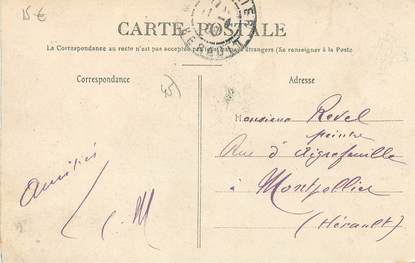 15 €
CARTE POSTALE
La Correspondance au recto n'est pas acceptée par tous les étrangers (Se renseigner à la Poste
Correspondance
Adresse
45
Monsieur Revel
peintre
Rue d'Aigrefeuille
à Montpellier
(Hérault)
Amitiés
M